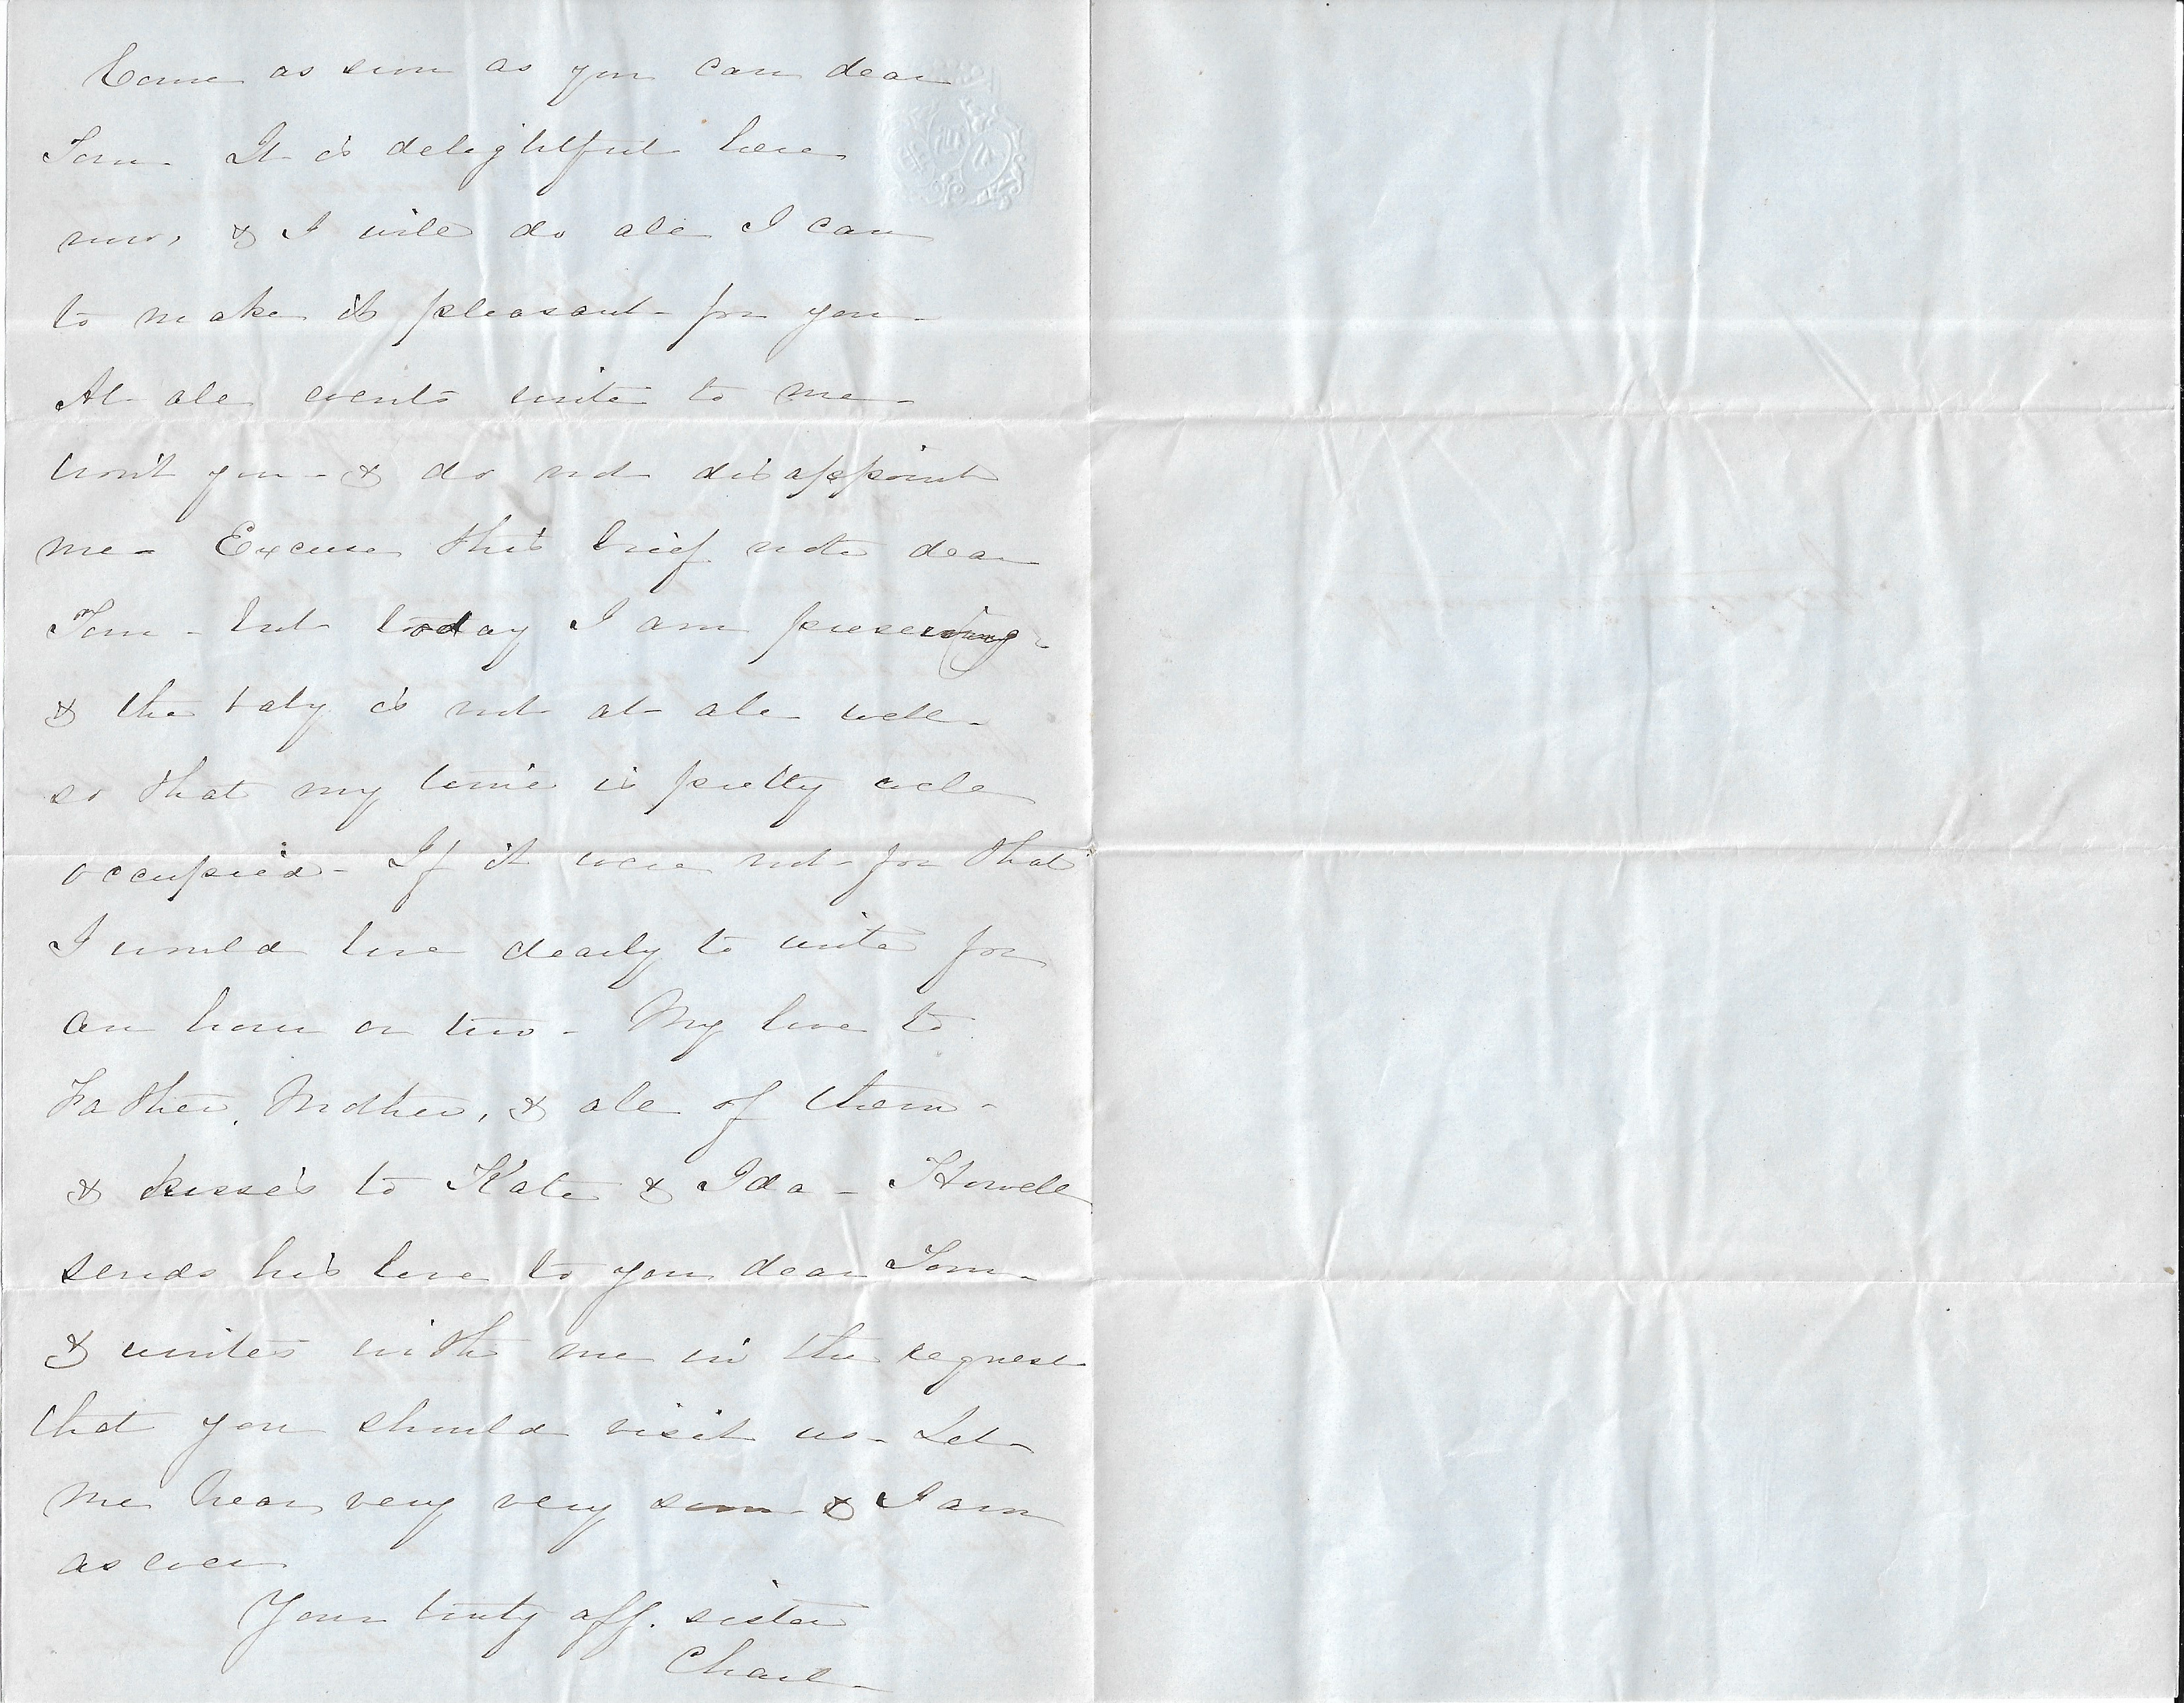 Come as soon as you can dear
Tom - It is delightful here
now, & I will do all I can
to make it pleasant - for you -
At all events write to me -
won't you - & do not disappoint
me - Excuse this brief note dear
Tom - but today I am preserving -
& the baby is not at all well -
so that my time is pretty well
occupied - If it were not for that
I would love dearly to write for
an hour or two - My love to
Father, Mother, & all of them -
& kisses to Kate & Ida - Howell
sends his love to you dear Tom -
& unites with me in the request
that you should visit us - Let
me hear very very soon & I am
as ever
Your truly aff. sister
Charl -